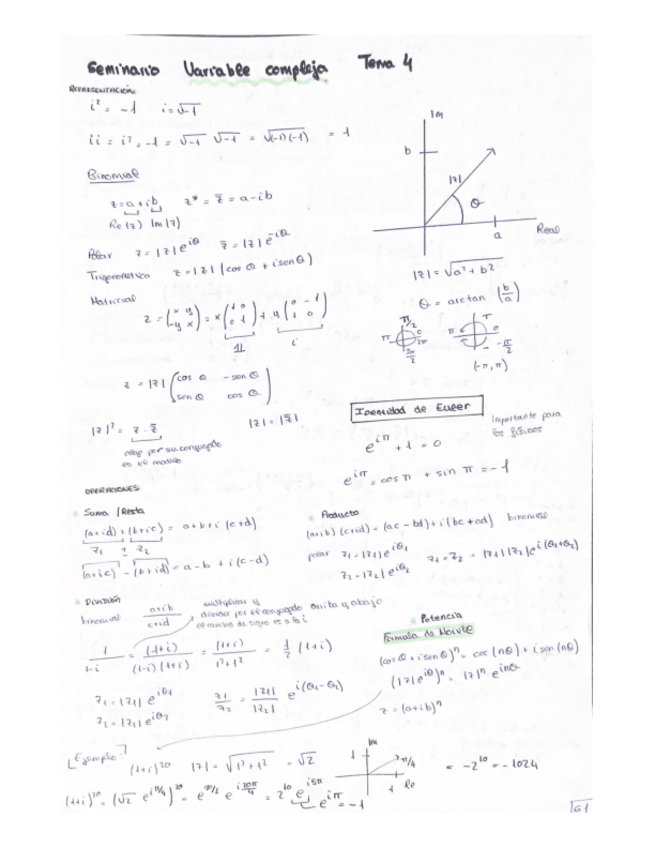 Seminario Variable compleja Tema 4
REPRESENTACIÓN
i² = -1 i = √-1
ii = i² = -1 = √-1 √-1 = √(-1)(-1) = 1
Binomial
z = a + ib z* = z̄ = a - ib
Re(z) Im(z)
Polar z = |z| e^{iθ} z̄ = |z| e^{-iθ}
Trigonométrica z = |z| (cos θ + i sen θ)
Matricial z = (x y; -y x) = x (1 0; 0 1) + y (0 -1; 1 0)
1 i
z = |z| (cos θ -sen θ; sen θ cos θ)
|z|² = z · z̄ |z| = |z̄|
algo por su conjugado
es el modulo
Im
b
|z|
θ
a
Real
|z| = √a² + b²
θ = arctan (b/a)
π/2 π 0 2π 3π/2
π 0 -π/2
(-π, π)
Identidad de Euler
Importante para
los físicos
e^{iπ} + 1 = 0
e^{iπ} = cos π + sin π = -1
OPERACIONES
Suma / Resta
(a+id) + (b+ic) = a+b+i(c+d)
z₁ ± z₂
(a+ic) - (b+id) = a-b + i(c-d)
Producto
(a+ib)(c+id) = (ac - bd) + i(bc + ad) binomial
polar z₁ = |z₁| e^{iθ₁} z₁ = z₂ = |z₁| |z₂| e^{i(θ₁+θ₂)}
z₂ = |z₂| e^{iθ₂}
División
binomial a+ib/c+id multiplicar y
dividir por el conjugado arriba y abajo
el cambio de signo es a la i
1/1-i = (1+i)/(1-i)(1+i) = (1+i)/1²+1² = 1/2 (1+i)
z₁ = |z₁| e^{iθ₁} z₁/z₂ = |z₁|/|z₂| e^{i(θ₁-θ₂)}
z₂ = |z₂| e^{iθ₂}
Potencia
Formula de Moivre
(cos θ + i sen θ)ⁿ = cos (nθ) + i sen (nθ)
(|z| e^{iθ})ⁿ = |z|ⁿ e^{inθ}
z = (a+ib)ⁿ
Ejemplo:
(1+i)²⁰ |z| = √1² + 1² = √2
Im 1 π/4 1 Re
= -2¹⁰ = -1024
(1+i)²⁰ = (√2 e^{iπ/4})²⁰ = e^{i20π/4} = 2¹⁰ e^{i5π}
e^{iπ} = -1
61